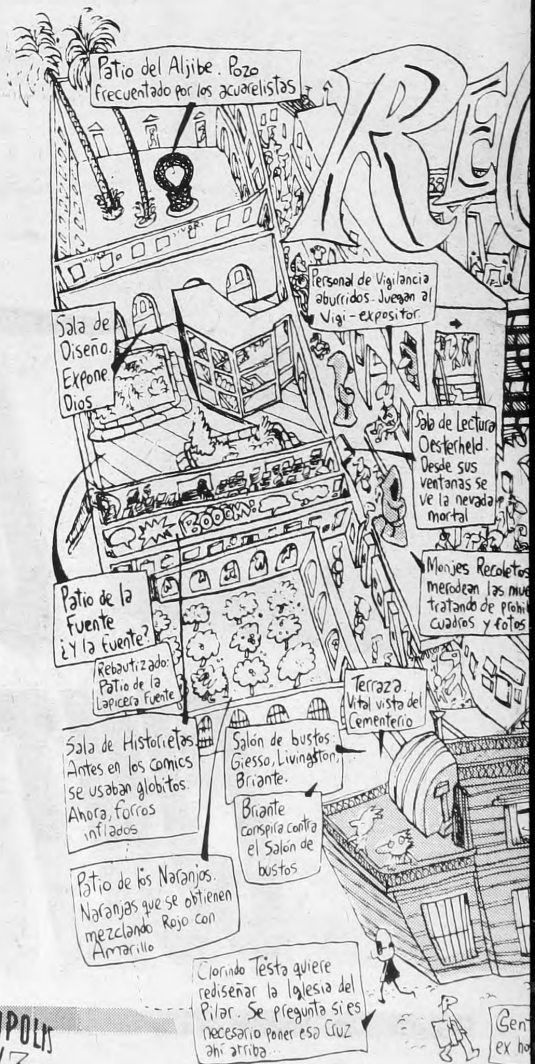 Patio del Aljibe. Pozo
frecuentado por los acuarelistas
REC
Personal de Vigilancia
aburridos. Juegan al
Vigi-expositor.
Sala de
Diseño.
Expone
Dios
Sala de Lectura
Oesterheld.
Desde sus
ventanas se
ve la nevada
mortal
BOOM
Monjes Recoletos
merodean las
tratando de
cuadros y fotos
Patio de la
Fuente
¿Y la Fuente?
Rebautizado:
Patio de la
Lapicera Fuente
Terraza.
Vital vista del
Cementerio
Sala de Historietas.
Antes en los comics
se usaban globitos.
Ahora, forros
inflados
Salón de bustos:
Giesso, Livingston,
Briante.
Briante
conspira contra
el Salón de
bustos
Patio de los Naranjos.
Naranjas que se obtienen
mezclando Rojo con
Amarillo
Clorindo Testa quiere
rediseñar la Iglesia del
Pilar. Se pregunta si es
necesario poner esa Cruz
ahí arriba...
Gen
ex